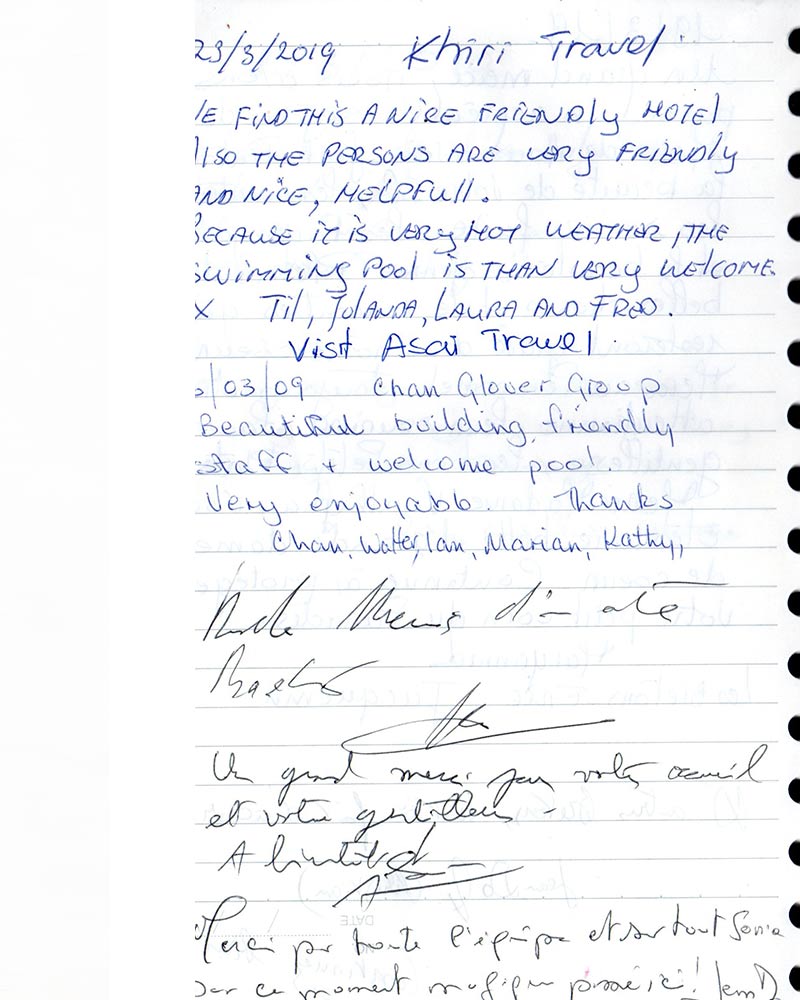 23/3/2019 Khiri Travel.
E FINDTHIS A NIRE FRIENDLY HOTEL
lSO THE PERSONS ARE VERY FRIENDLY
AND NICE, HELPFULL.
BECAUSE it is VERY HOT WEATHER, THE
SWIMMING POOL IS THAN VERY WELCOME.
X Til, JOLANDA, LAURA AND FRED.
Visit Asai Travel.
/03/09 Chan Glover Group
Beautiful building, friendly
staff + welcome pool.
Very enjoyable. Thanks
Chan, Walter, Ian, Marian, Kathy,
Un grand merci pour votre accueil
et votre gentillesse -
A bientôt
Merci par toute l'équipe et surtout Sonia
ce moment magique ici!
DATE